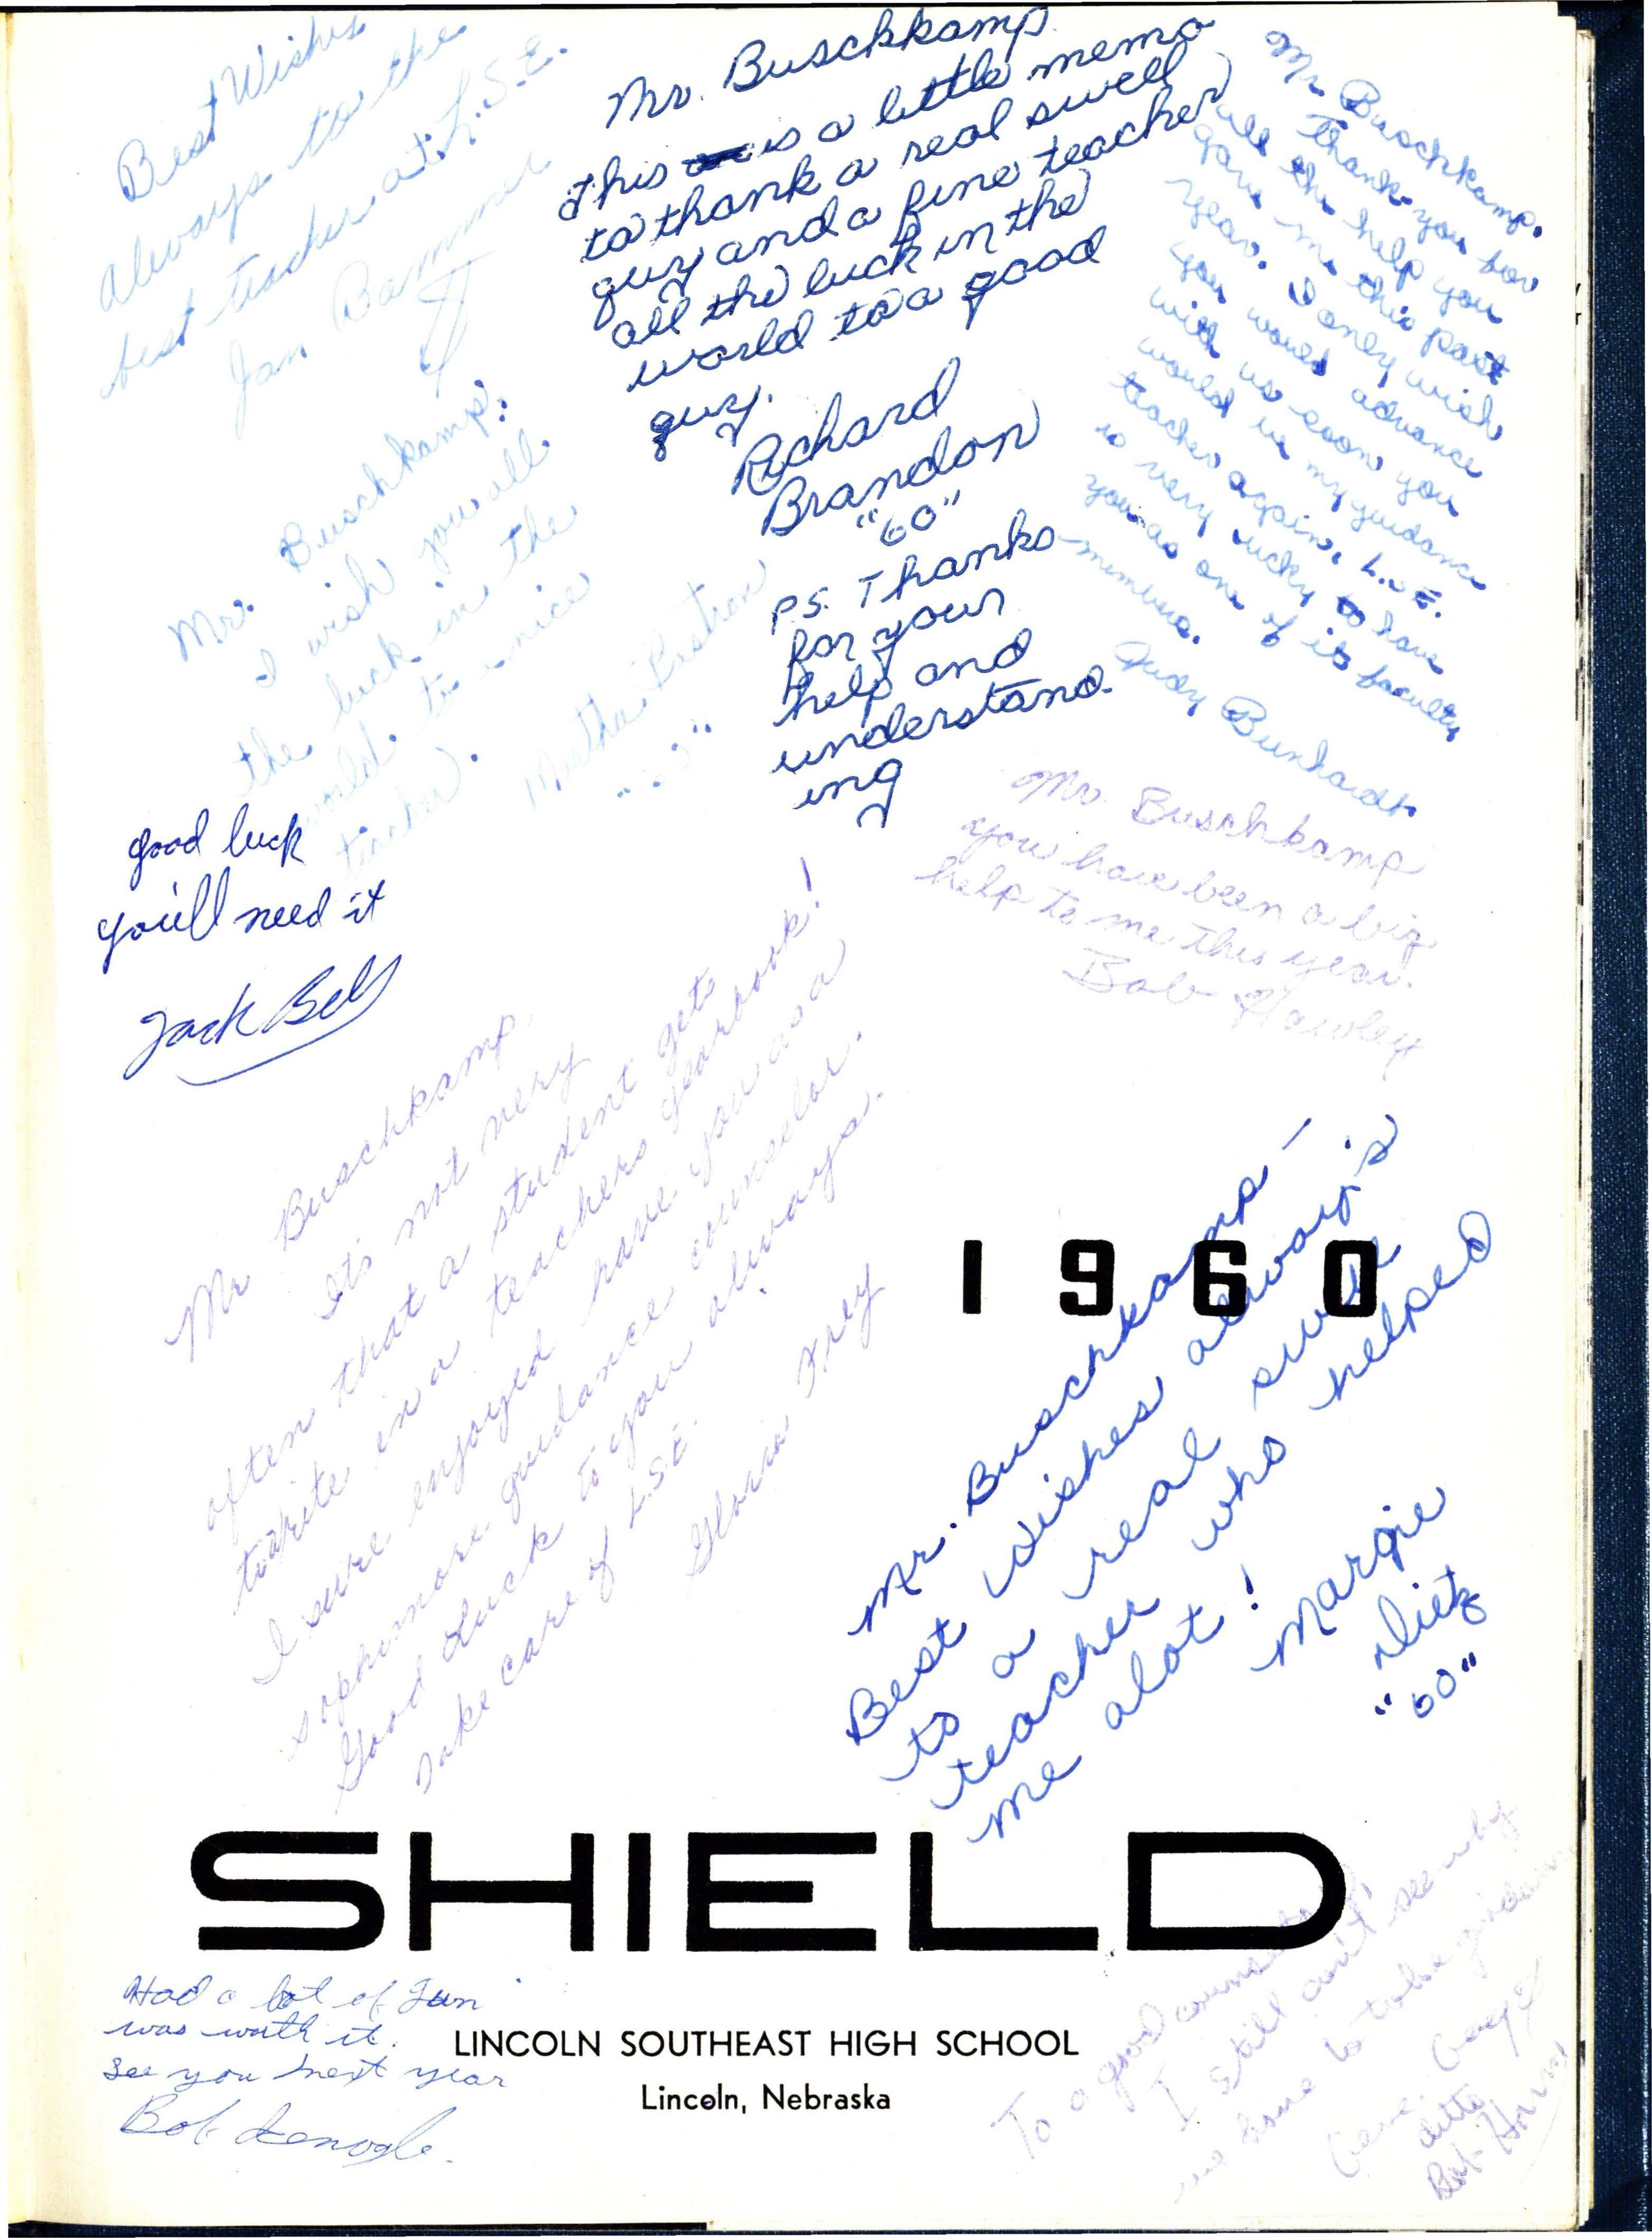 Best Wishes
always to the
best teacher at L.S.E.
Jan
Mr. Buschkamp
This is a little memo
to thank a real swell
guy and a fine teacher
all the luck in the
world to a good
guy.
Richard
Brandon
"60"
P.S. Thanks
for your
help and
understand
ing
Mr. Buschkamp,
Thank you for
all the help you
gave me this past
year. I only wish
you would advance
with us soon you
would be my guidance
teacher again. L.S.E.
is very lucky to have
you as one of its faculty
members.
Judy
Mr. Buschkamp:
I wish you all
the luck in the
world to a nice
teacher.
Martha
good luck
you'll need it
Jack Bell
Mr. Buschkamp
you have been a big
help to me this year.
Bob Hawley
Mr Buschkamp,
It's not very
often that a student gets
to write in a teachers yearbook!
I sure enjoyed have you as a
sophmore guidance counselor.
Good Luck to you always.
Take care of L.S.E.
Gloria Frey
1960
Mr. Buschkamp—
Best wishes always
to a real swell
teacher who helped
me alot!
Margie
Dietz
"60"
SHIELD
Had a lot of fun
was worth it.
See you next year
Bob
LINCOLN SOUTHEAST HIGH SCHOOL
Lincoln, Nebraska
To a good counselor,
I still can't see why
we have to take
ditto
Bob